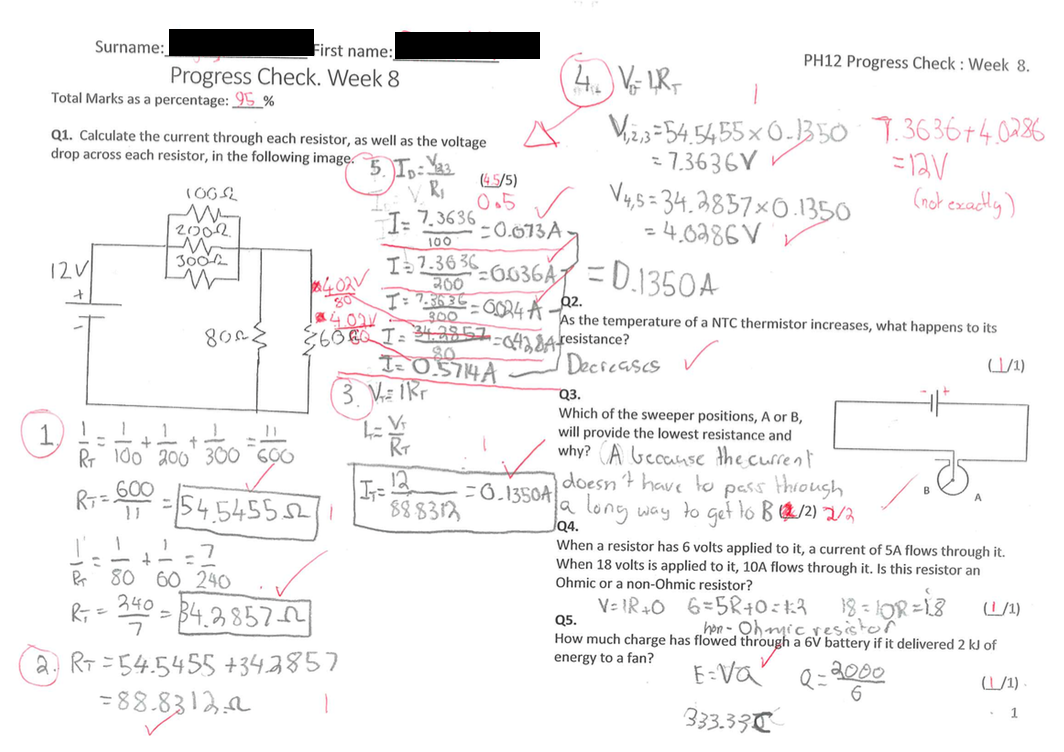 Surname:
First name:
PH12 Progress Check : Week 8.
Progress Check. Week 8
Total Marks as a percentage: 95 %
Q1. Calculate the current through each resistor, as well as the voltage
drop across each resistor, in the following image.
(4.5/5)
0.5
100Ω
200Ω
300Ω
12V
+
-
80Ω
60Ω
4.02V
80
4.02V
60
1.
1/RT = 1/100 + 1/200 + 1/300 = 11/600
RT = 600/11 = 54.5455Ω
1
1/RT = 1/80 + 1/60 = 7/240
RT = 240/7 = 34.2857Ω
2. RT = 54.5455 + 34.2857
= 88.8312Ω
1
3. VT = IRT
IT = VT/RT
1
IT = 12/88.8312 = 0.1350A
4. VD = IRT
1
V1,2,3 = 54.5455 × 0.1350
= 7.3636V
V4,5 = 34.2857 × 0.1350
= 4.0286V
7.3636 + 4.0286
= 12V
(not exactly)
5. ID = V123/R1
I = 7.3636/100 = 0.073A
I = 7.3636/200 = 0.036A
I = 7.3636/300 = 0.024A
I = 34.2857/80 = 0.428A
I = 0.5714A
= 0.1350A
Q2.
As the temperature of a NTC thermistor increases, what happens to its
resistance?
Decreases
(1/1)
Q3.
Which of the sweeper positions, A or B,
will provide the lowest resistance and
why? (A because the current
doesn't have to pass through
a long way to get to B (2/2) 2/2
- +
B
A
Q4.
When a resistor has 6 volts applied to it, a current of 5A flows through it.
When 18 volts is applied to it, 10A flows through it. Is this resistor an
Ohmic or a non-Ohmic resistor?
V=IR+0 6=5R+0=1.2 18=10R=1.8 (1/1)
non-Ohmic resistor
Q5.
How much charge has flowed through a 6V battery if it delivered 2 kJ of
energy to a fan?
E=VQ Q=2000/6
(1/1)
333.33C
1